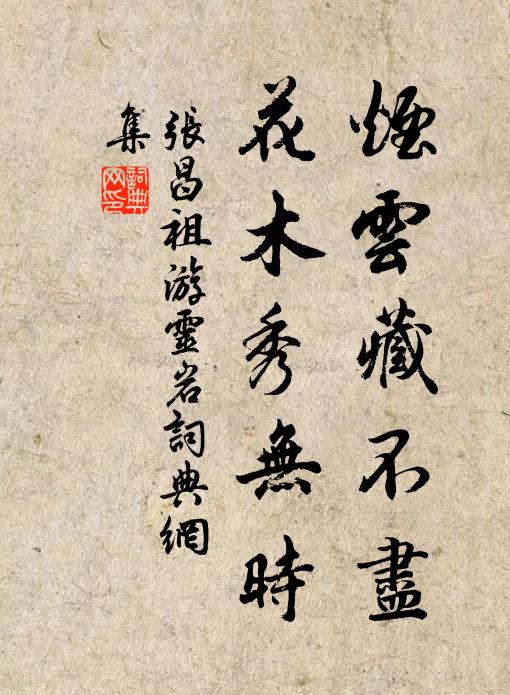 煙雲藏不盡
花木秀無時
張昌祖游靈岩詞典網
集
詞典
网印